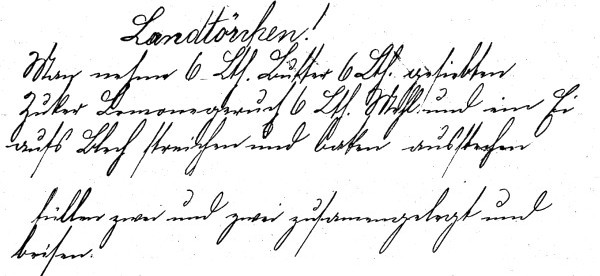 Landtörtchen!
Man nehme 6 Lth. Butter 6 Lth. gesiebten
Zuker Lemonegeruch 6 Lth. Mehl und ein Ei
aufs Blech streichen und baken ausstechen
füllen zwei und zwei zusamengelegt und
beeisen.